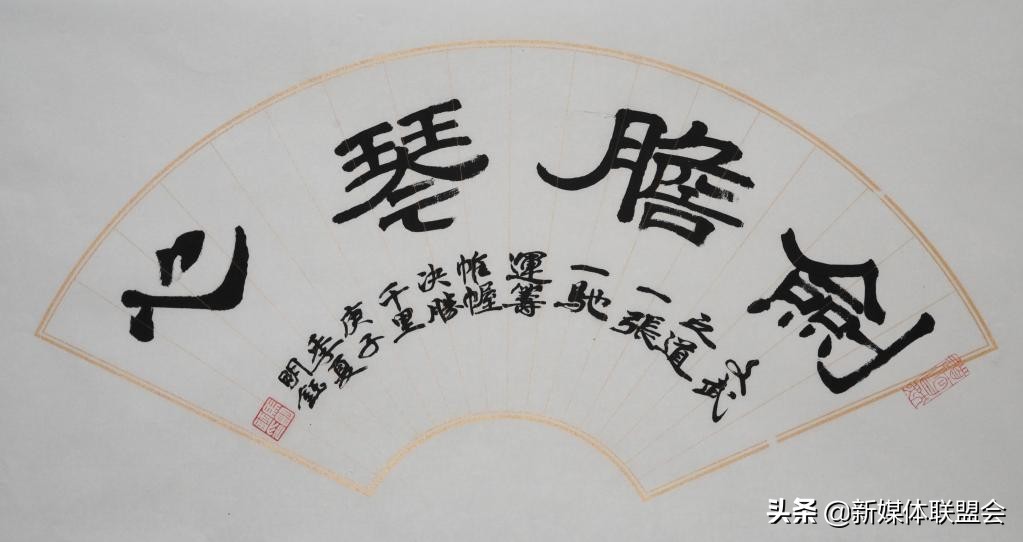 劍膽琴心
文武
之道
一張
一馳
運籌
帷幄
决勝
千里
庚子
季夏
明
头条 @新媒体联盟会